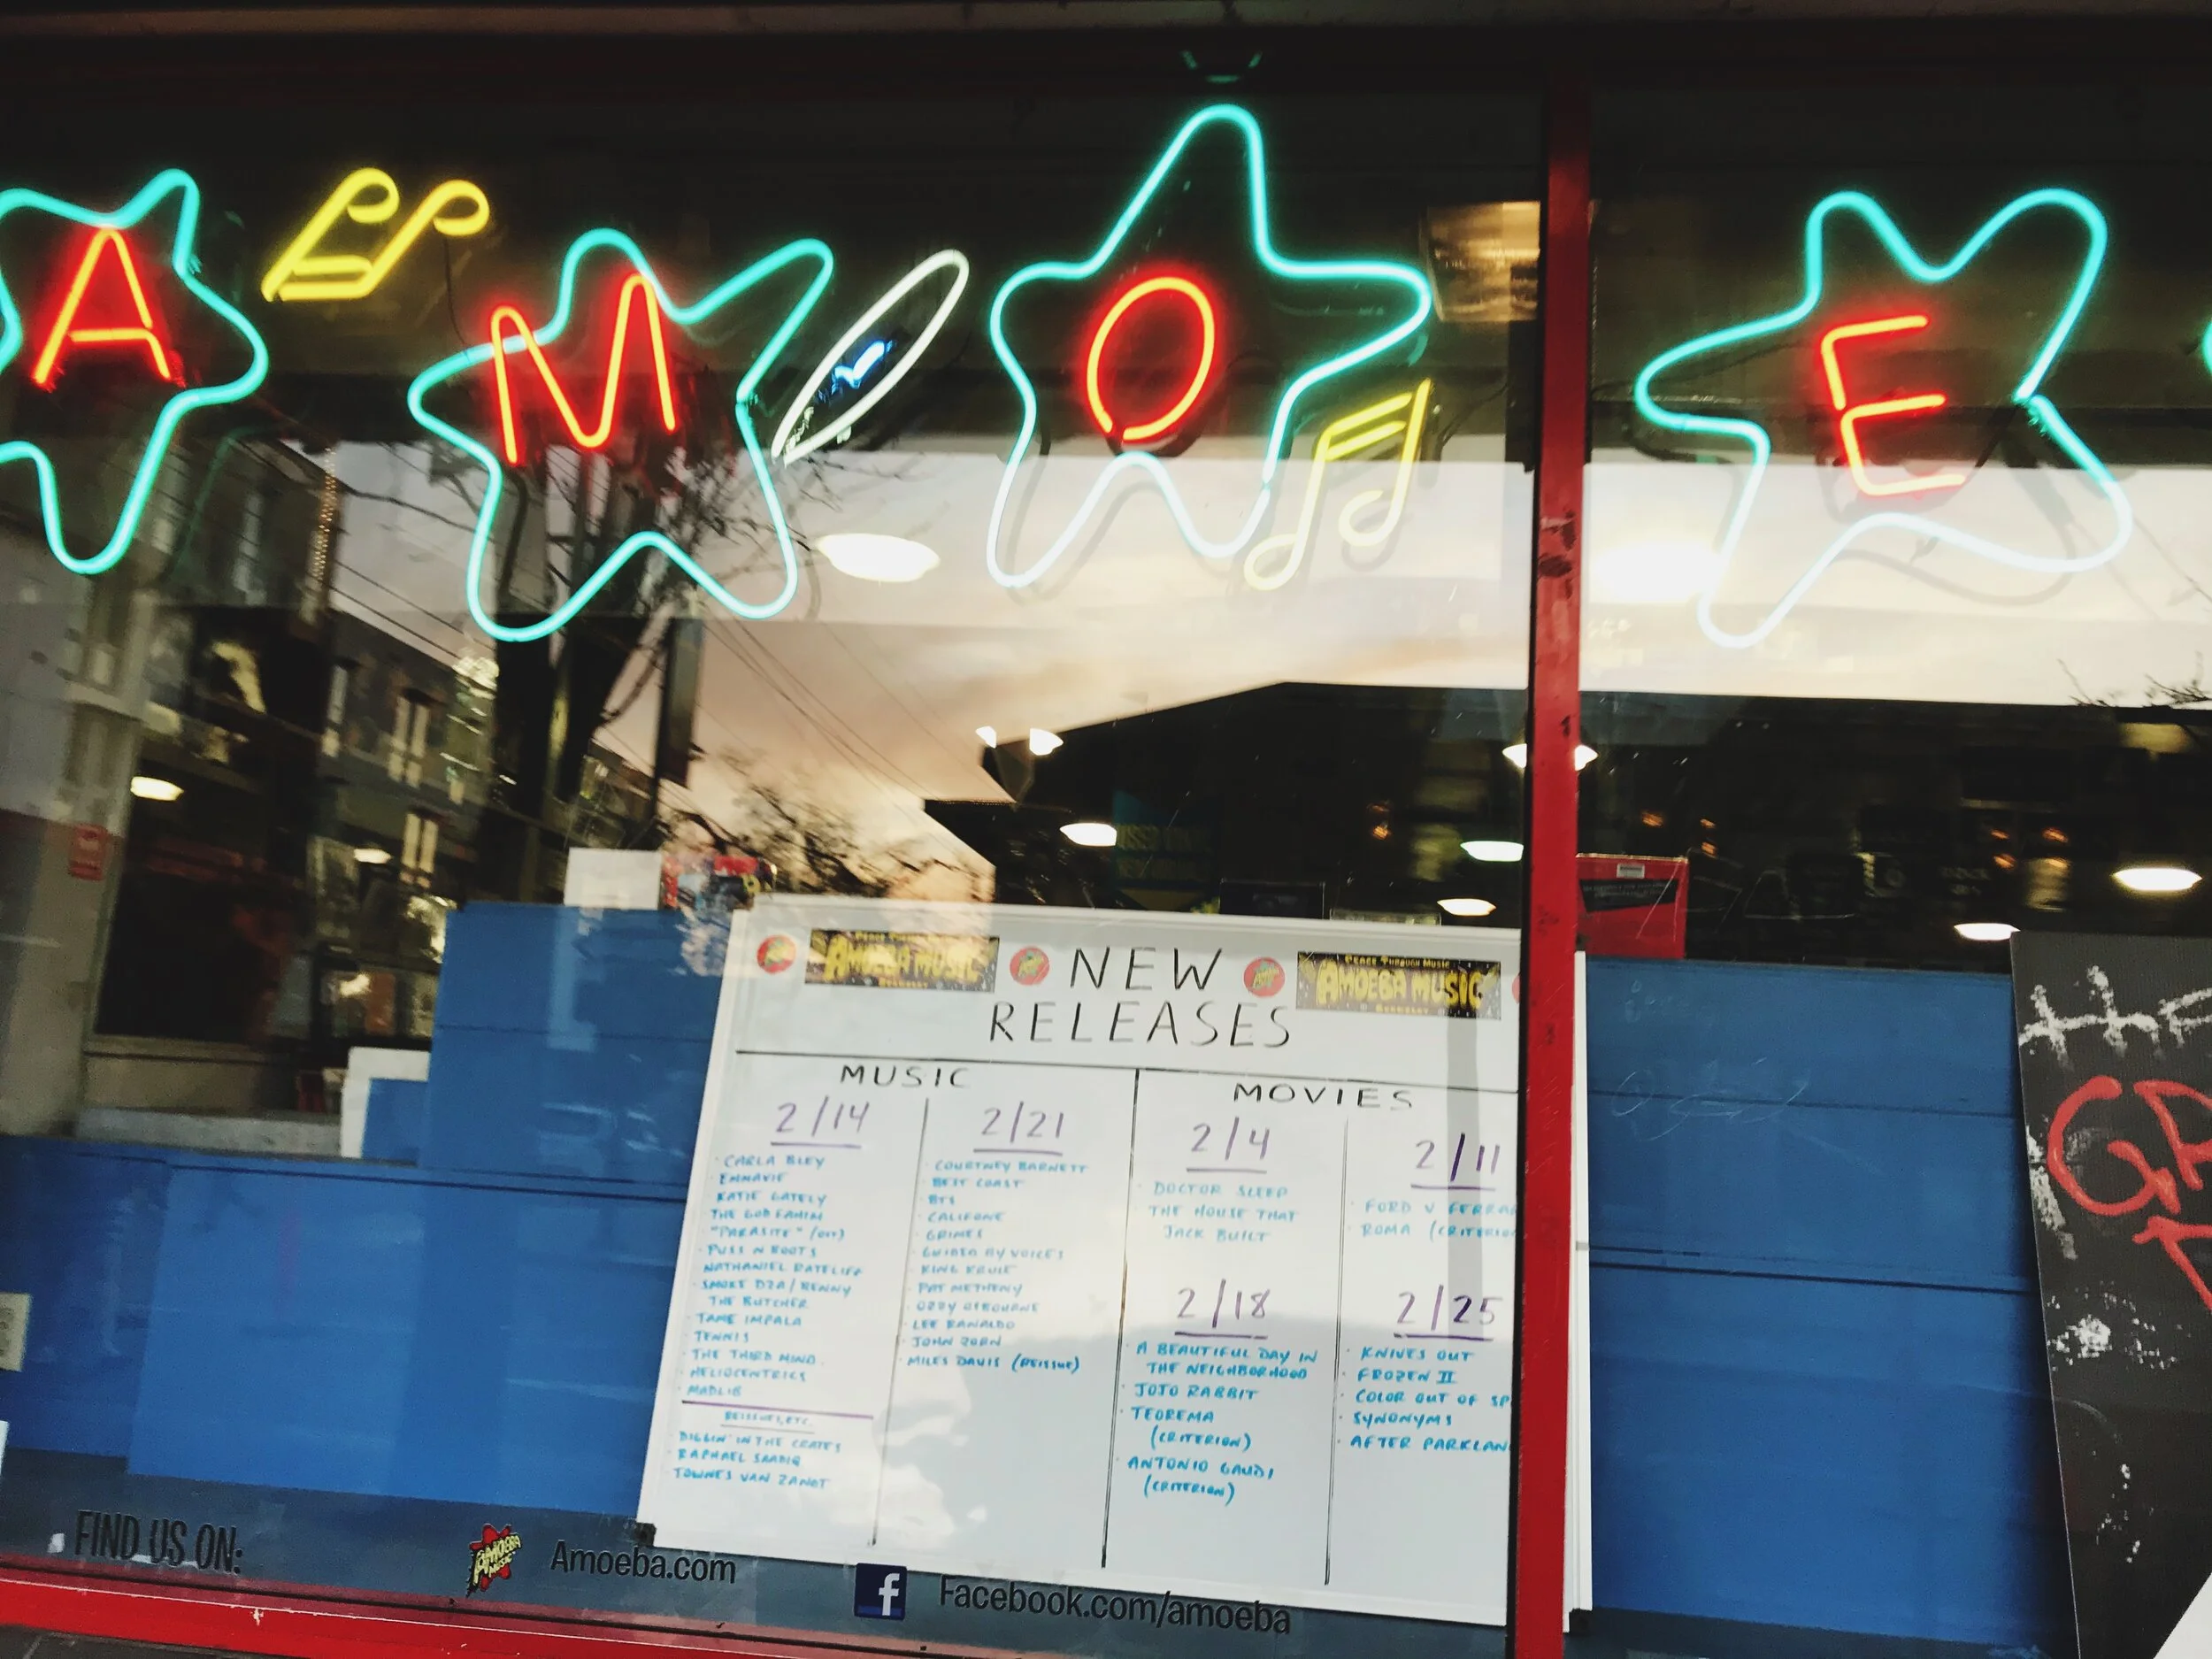 A M O E
PEACE THROUGH MUSIC
AMOEBA MUSIC
BERKELEY
NEW
PEACE THROUGH MUSIC
AMOEBA MUSIC
BERKELEY
RELEASES
MUSIC
2/14
· CARLA BLEY
· EMMAVIE
· KATIE GATELY
· THE GOD FAHIM
· "PARASITE" (OST)
· PUSS N BOOTS
· NATHANIEL RATELIFF
· SMOKE DZA / BENNY
THE BUTCHER
· TAME IMPALA
· TENNIS
· THE THIRD MIND
· HELIOCENTRICS
· MADLIB
REISSUES, ETC.
· DIGGIN' IN THE CRATES
· RAPHAEL SAADIQ
· TOWNES VAN ZANDT
2/21
· COURTNEY BARNETT
· BEST COAST
· BTS
· CALIFONE
· GRIMES
· GUIDED BY VOICES
· KING KRULE
· PAT METHENY
· OZZY OSBOURNE
· LEE RANALDO
· JOHN ZORN
· MILES DAVIS (REISSUE)
MOVIES
2/4
· DOCTOR SLEEP
· THE HOUSE THAT
JACK BUILT
2/11
· FORD V FERRA
· ROMA (CRITERIO
2/18
· A BEAUTIFUL DAY IN
THE NEIGHBORHOOD
· JOJO RABBIT
· TEOREMA
(CRITERION)
· ANTONIO GAUDI
(CRITERION)
2/25
· KNIVES OUT
· FROZEN II
· COLOR OUT OF SP
· SYNONYMS
· AFTER PARKLAN
FIND US ON:
AMOEBA
MUSIC
Amoeba.com
f
Facebook.com/amoeba